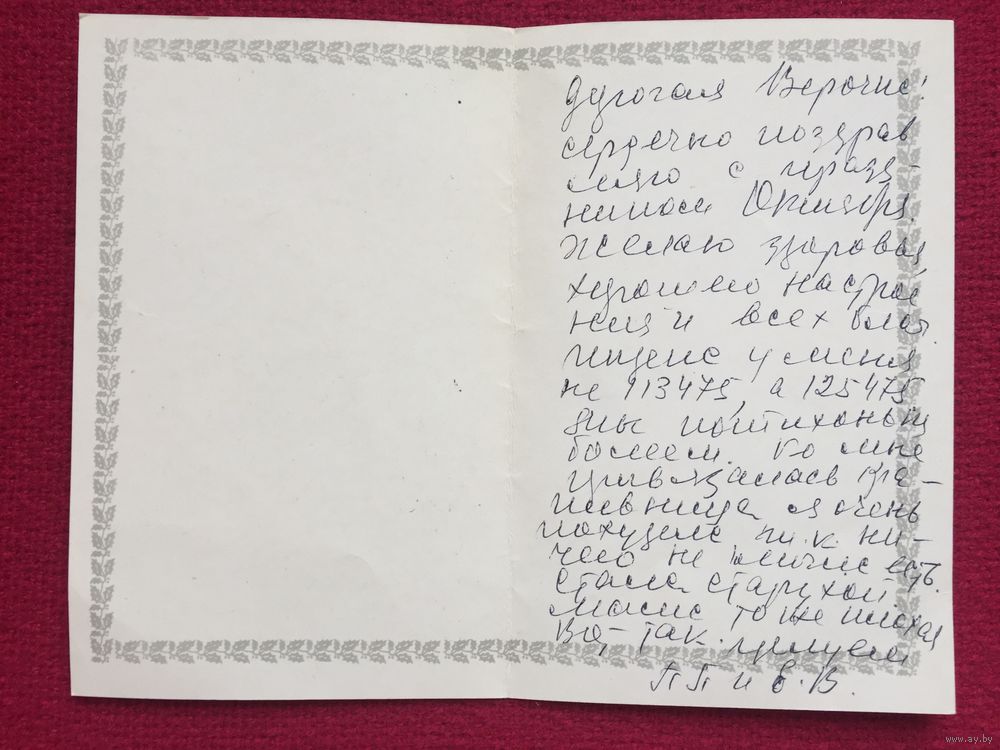 дугогая Верочка!
сердечно поздрав
ляю с празд-
ником Октября.
желаю здоровья
хорошего настрое
ния и всех благ
индекс у меня
не 113475, а 125475
мы потихоньку
болеем. Ко мне
привязалась кра-
пивница я очень
похудела т.к. ни-
чего не могла есть.
стала старухой
тоже плохая
Во, так. целуем
ПП и в.В.
www.ay.by